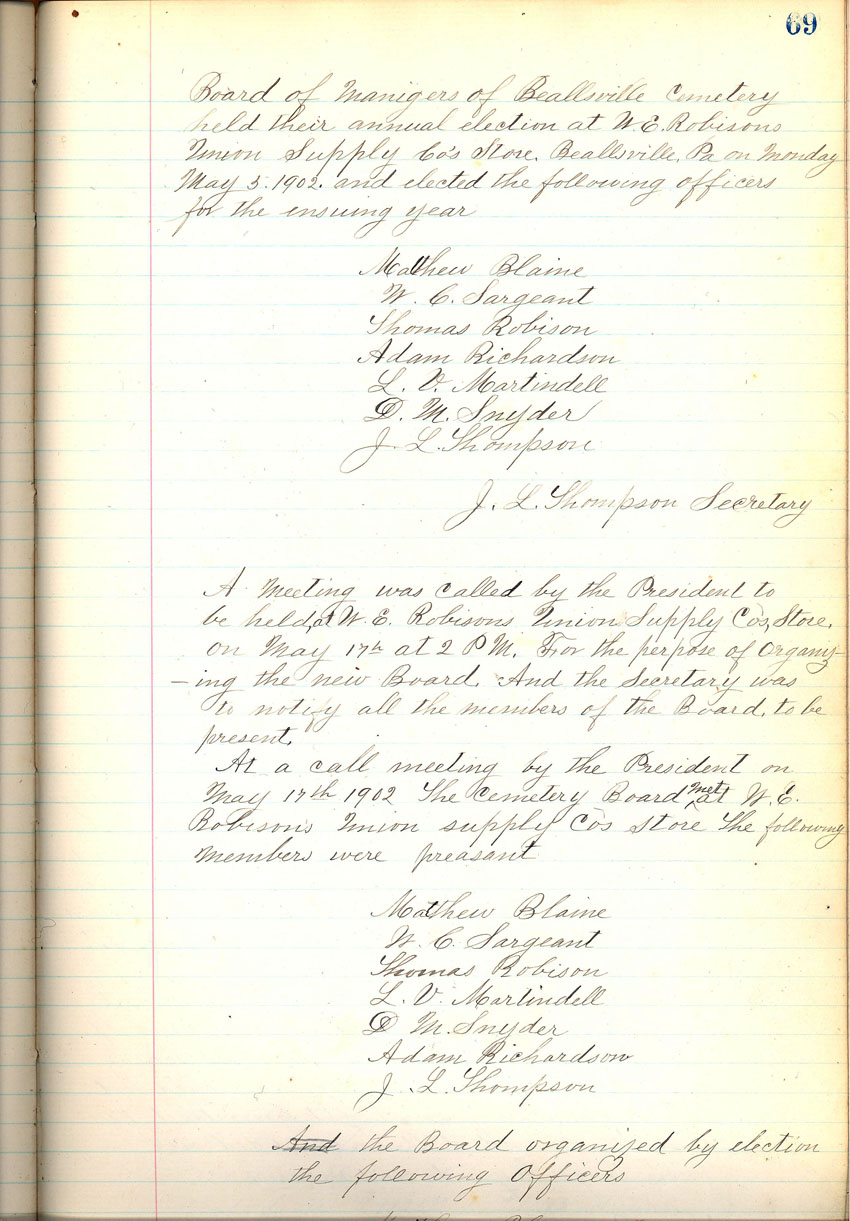 69
Board of Manigers of Beallsville Cemetery
held their annual election at W. E. Robisons
Union Supply Co's Store. Beallsville, Pa on Monday
May 5. 1902. and elected the following officers
for the ensuing year
Mathew Blaine
W. C. Sargeant
Thomas Robison
Adam Richardson
L. V. Martindell
D. M. Snyder
J. L. Thompson
J. L. Thompson Secretary
A Meeting was called by the President to
be held, at W. E. Robisons Union Supply Co's, Store,
on May 17th at 2 P M. For the perpose of Organiz-
-ing the new Board. And the Secretary was
to notify all the members of the Board, to be
present.
At a call meeting by the President on
May 17th 1902 The Cemetery Board met at W. E.
Robisons Union supply Co's Store The following
Members were preasant
Mathew Blaine
W. C. Sargeant
Thomas Robison
L. V. Martindell
D M. Snyder
Adam Richardson
J. L. Thompson
And the Board organized by election
the following Officers